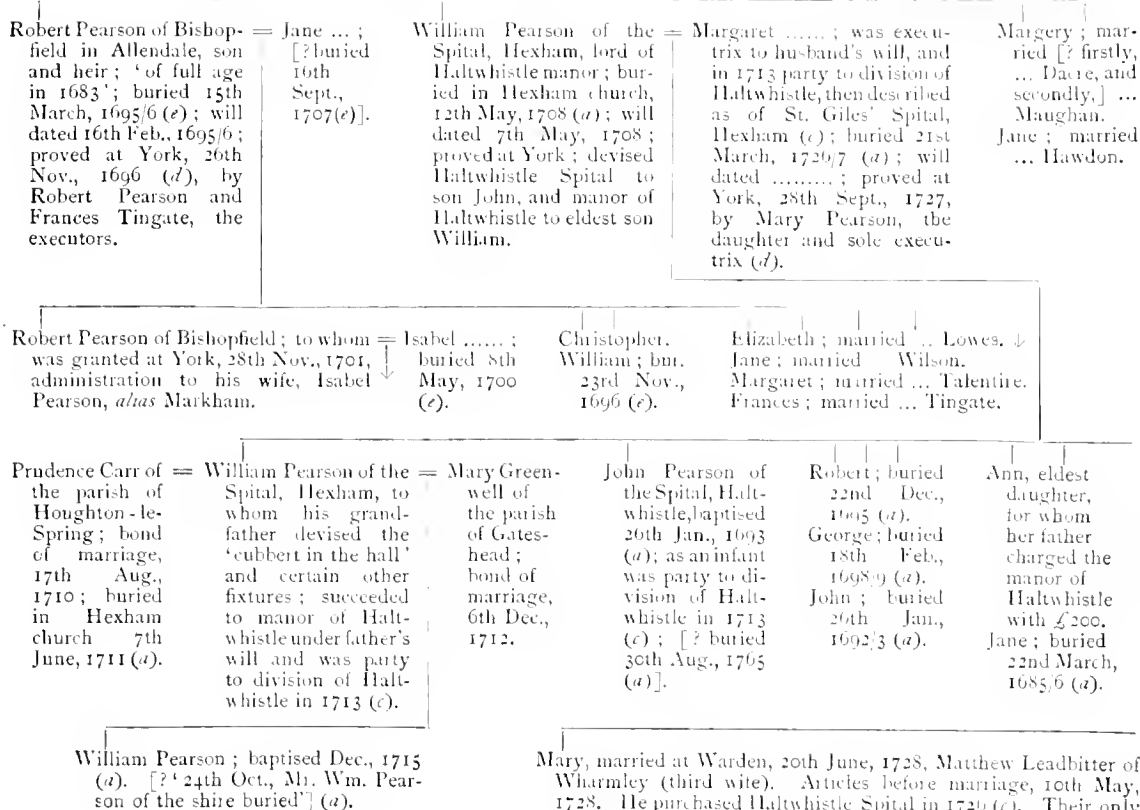 Robert Pearson of Bishop-
field in Allendale, son
and heir; ‘of full age
in 1683’; buried 15th
March, 1695/6 (e); will
dated 16th Feb., 1695/6;
proved at York, 26th
Nov., 1696 (d), by
Robert Pearson and
Frances Tingate, the
executors.
= Jane ... ;
[? buried
16th
Sept.,
1707(e)].
William Pearson of the
Spital, Hexham, lord of
Haltwhistle manor; bur-
ied in Hexham church,
12th May, 1708 (a); will
dated 7th May, 1708;
proved at York; devised
Haltwhistle Spital to
son John, and manor of
Haltwhistle to eldest son
William.
= Margaret ...... ; was execu-
trix to husband's will, and
in 1713 party to division of
Haltwhistle, then described
as of St. Giles' Spital,
Hexham (c); buried 21st
March, 1726/7 (a); will
dated ......... ; proved at
York, 28th Sept., 1727,
by Mary Pearson, the
daughter and sole execu-
trix (d).
Margery; mar-
ried [? firstly,
... Dacre, and
secondly,] ...
Maughan.
Jane; married
... Hawdon.
Robert Pearson of Bishopfield; to whom
was granted at York, 28th Nov., 1701,
administration to his wife, Isabel
Pearson, alias Markham.
= Isabel ...... ;
buried 8th
May, 1700
(e).
Christopher.
William; bur.
23rd Nov.,
1696 (e).
Elizabeth; married .. Lowes.
Jane; married Wilson.
Margaret; married ... Talentire.
Frances; married ... Tingate.
Prudence Carr of
the parish of
Houghton-le-
Spring; bond
of marriage,
17th Aug.,
1710; buried
in Hexham
church 7th
June, 1711 (a).
= William Pearson of the
Spital, Hexham, to
whom his grand-
father devised the
‘cubbert in the hall’
and certain other
fixtures; succeeded
to manor of Halt-
whistle under father's
will and was party
to division of Halt-
whistle in 1713 (c).
= Mary Green-
well of
the parish
of Gates-
head;
bond of
marriage,
6th Dec.,
1712.
John Pearson of
the Spital, Halt-
whistle, baptised
26th Jan., 1693
(a); as an infant
was party to di-
vision of Halt-
whistle in 1713
(c); [? buried
30th Aug., 1765
(a)].
Robert; buried
22nd Dec.,
1695 (a).
George; buried
18th Feb.,
1698/9 (a).
John; buried
26th Jan.,
1692/3 (a).
Ann, eldest
daughter,
for whom
her father
charged the
manor of
Haltwhistle
with £200.
Jane; buried
22nd March,
1685/6 (a).
William Pearson; baptised Dec., 1715
(a). [? ‘24th Oct., Mr. Wm. Pear-
son of the shire buried’] (a).
Mary, married at Warden, 20th June, 1728, Matthew Leadbitter of
Wharmley (third wife). Articles before marriage, 10th May,
1728. He purchased Haltwhistle Spital in (c). Their only